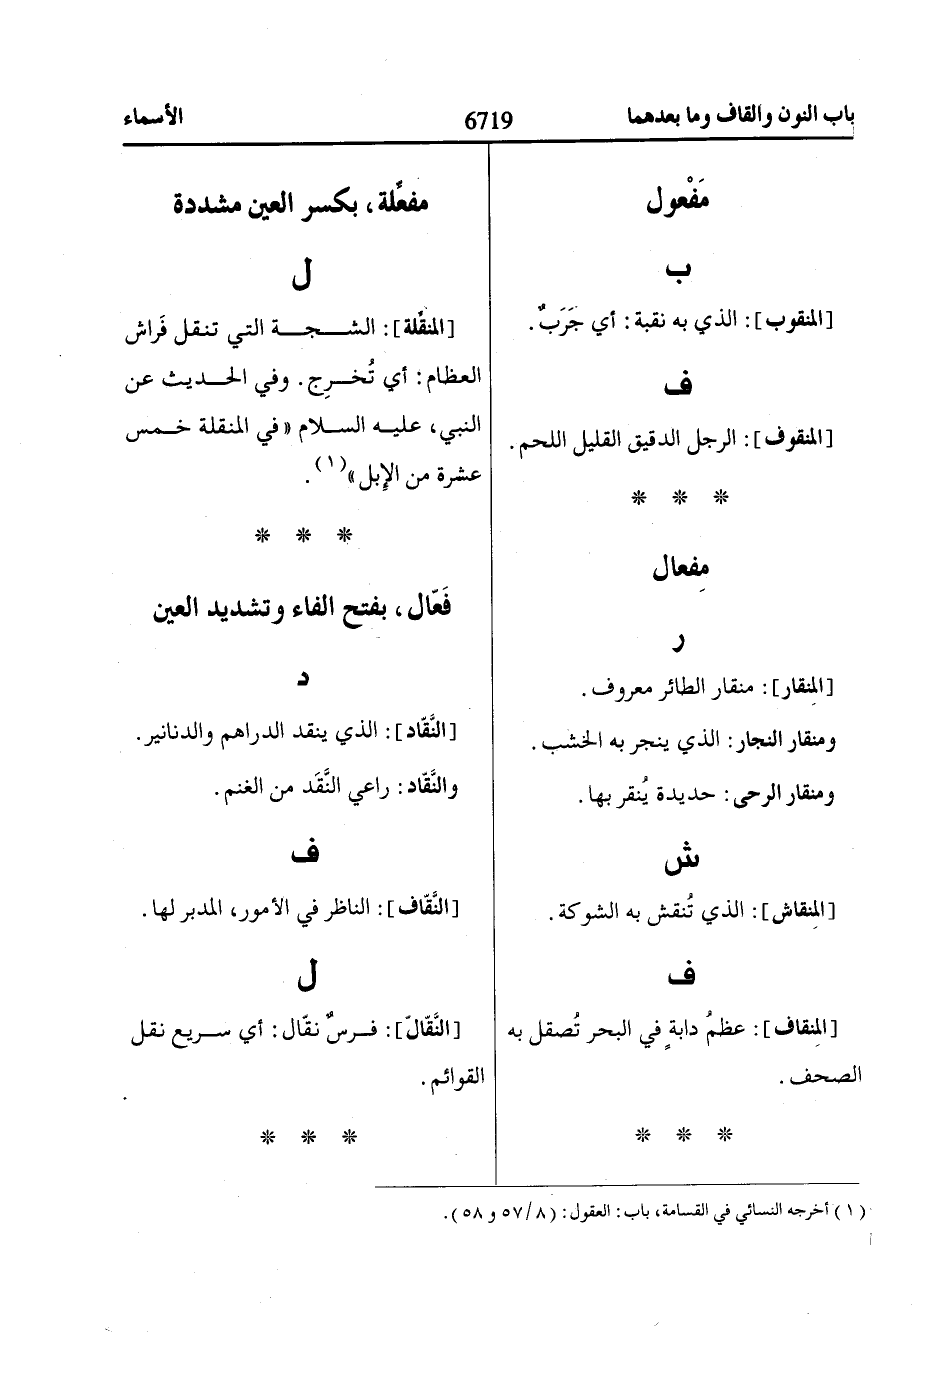 باب النون والقاف وما بعدهما
6719
الأسماء
مَفْعول
ب
[المنقوب]: الذي به نقبة: أي جَرَبٌ.
ف
[المنقوف]: الرجل الدقيق القليل اللحم.
* * *
مِفعال
ر
[المِنقار]: منقار الطائر معروف.
ومنقار النجار: الذي ينجر به الخشب.
ومنقار الرحى: حديدة يُنقر بها.
ش
[المِنقاش]: الذي تُنقش به الشوكة.
ف
[المِنقاف]: عظمُ دابةٍ في البحر تُصقل به
الصحف.
* * *
مفعِّلة، بكسر العين مشددة
ل
[المنقِّلة]: الشجة التي تنقل فَراش
العظام: أي تُخرِج. وفي الحديث عن
النبي، عليه السلام «في المنقلة خمس
عشرة من الإِبل»(١).
* * *
فَعّال، بفتح الفاء وتشديد العين
د
[النَّقّاد]: الذي ينقد الدراهم والدنانير.
والنَّقّاد: راعي النَّقَد من الغنم.
ف
[النَّقّاف]: الناظر في الأمور، المدبر لها.
ل
[النَّقّالّ]: فرسٌ نقّال: أي سريع نقل
القوائم.
* * *
(١) أخرجه النسائي في القسامة، باب: العقول: (٥٧/٨ و ٥٨).